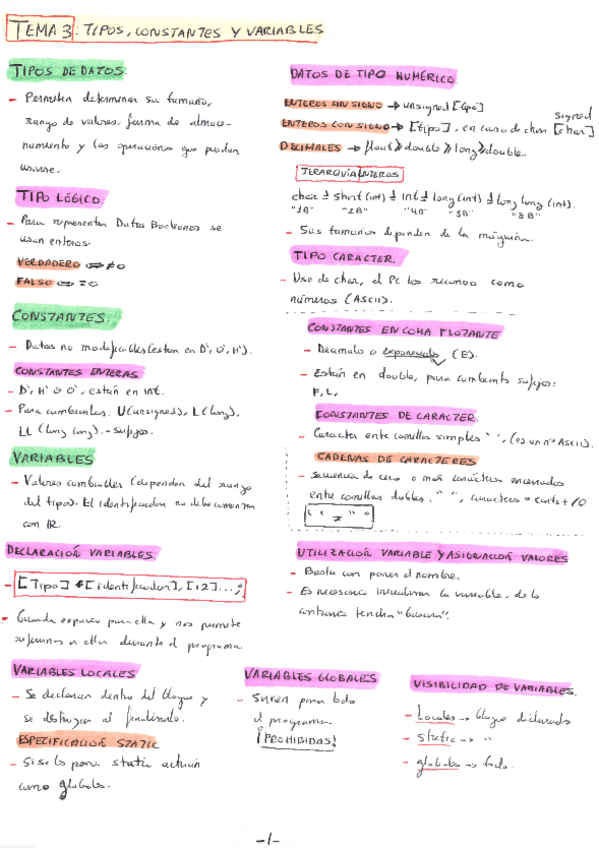 TEMA 3: TIPOS, CONSTANTES Y VARIABLES.
TIPOS DE DATOS.
- Permiten determinar su tamaño,
rango de valores, forma de almace-
namiento y las operaciones que puedan
usarse.
TIPO LÓGICO.
- Para representar Datos Booleanos se
usan enteros.
VERDADERO ⇔ ≠0
FALSO ⇔ =0
CONSTANTES.
- Datos no modificables (están en D', O', H').
CONSTANTES ENTERAS.
- D', H' o O', están en int.
- Para cambiarlas: U (unsigned), L (long),
LL (long long). - Sufijos.
VARIABLES
- Valores cambiables (dependen del rango
del tipo). El identificador no debe comenzar
con
DECLARACIÓN VARIABLES.
- [Tipo] [identificador], [i2]...;
- Guarda espacio para ella y nos permite
referirnos a ella durante el programa.
VARIABLES LOCALES
- Se declaran dentro del bloque y
se destruyen al finalizarlo.
ESPECIFICACIÓN STATIC
- Si se les pone static actúan
como globales.
DATOS DE TIPO NUMÉRICO.
ENTEROS SIN SIGNO → unsigned [tipo]
ENTEROS CON SIGNO → [tipo], en caso de char signed [char]
DECIMALES → float » double » long » double.
JERARQUÍA ENTEROS
char ≤ short (int) ≤ int ≤ long (int) ≤ long long (int).
"1B" "2B" "4B" "8B" "8B"
- Sus tamaños dependen de la máquina.
TIPO CARACTER.
- Uso de char, el PC los reconoce como
números (ASCII).
CONSTANTES EN COMA FLOTANTE
- Decimales o exponenciales (E).
- Están en double, para cambiarlos sufijos:
F, L,
CONSTANTES DE CARACTER.
- Caracter entre comillas simples ' ', (es un nº ASCII).
CADENAS DE CARACTERES
- Secuencia de cero o más caracteres encerrados
entre comillas dobles. " ", caracteres = carts + /0
' ' ≠ " "
UTILIZACIÓN VARIABLE Y ASIGNACIÓN VALORES
- Basta con poner el nombre.
- Es necesario inicializar la variable, de lo
contrario tendrá "basura".
VARIABLES GLOBALES
- Sirven para todo
el programa.
¡PROHIBIDAS!
VISIBILIDAD DE VARIABLES.
- Locales → bloque declarado
- Static → "
- globales → todo.
-1-